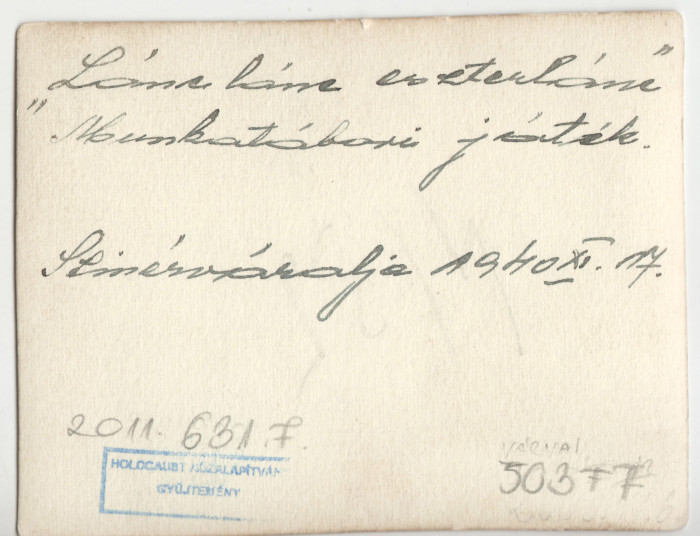 "Lánc lánc eszterlánc"
Munkatábori játék.
Szinérváralja 1940 XI. 17.
2011. 631. 7.
HOLOCAUST KÖZALAPÍTVÁNY
GYŰJTEMÉNY
VÁRNAI
50377